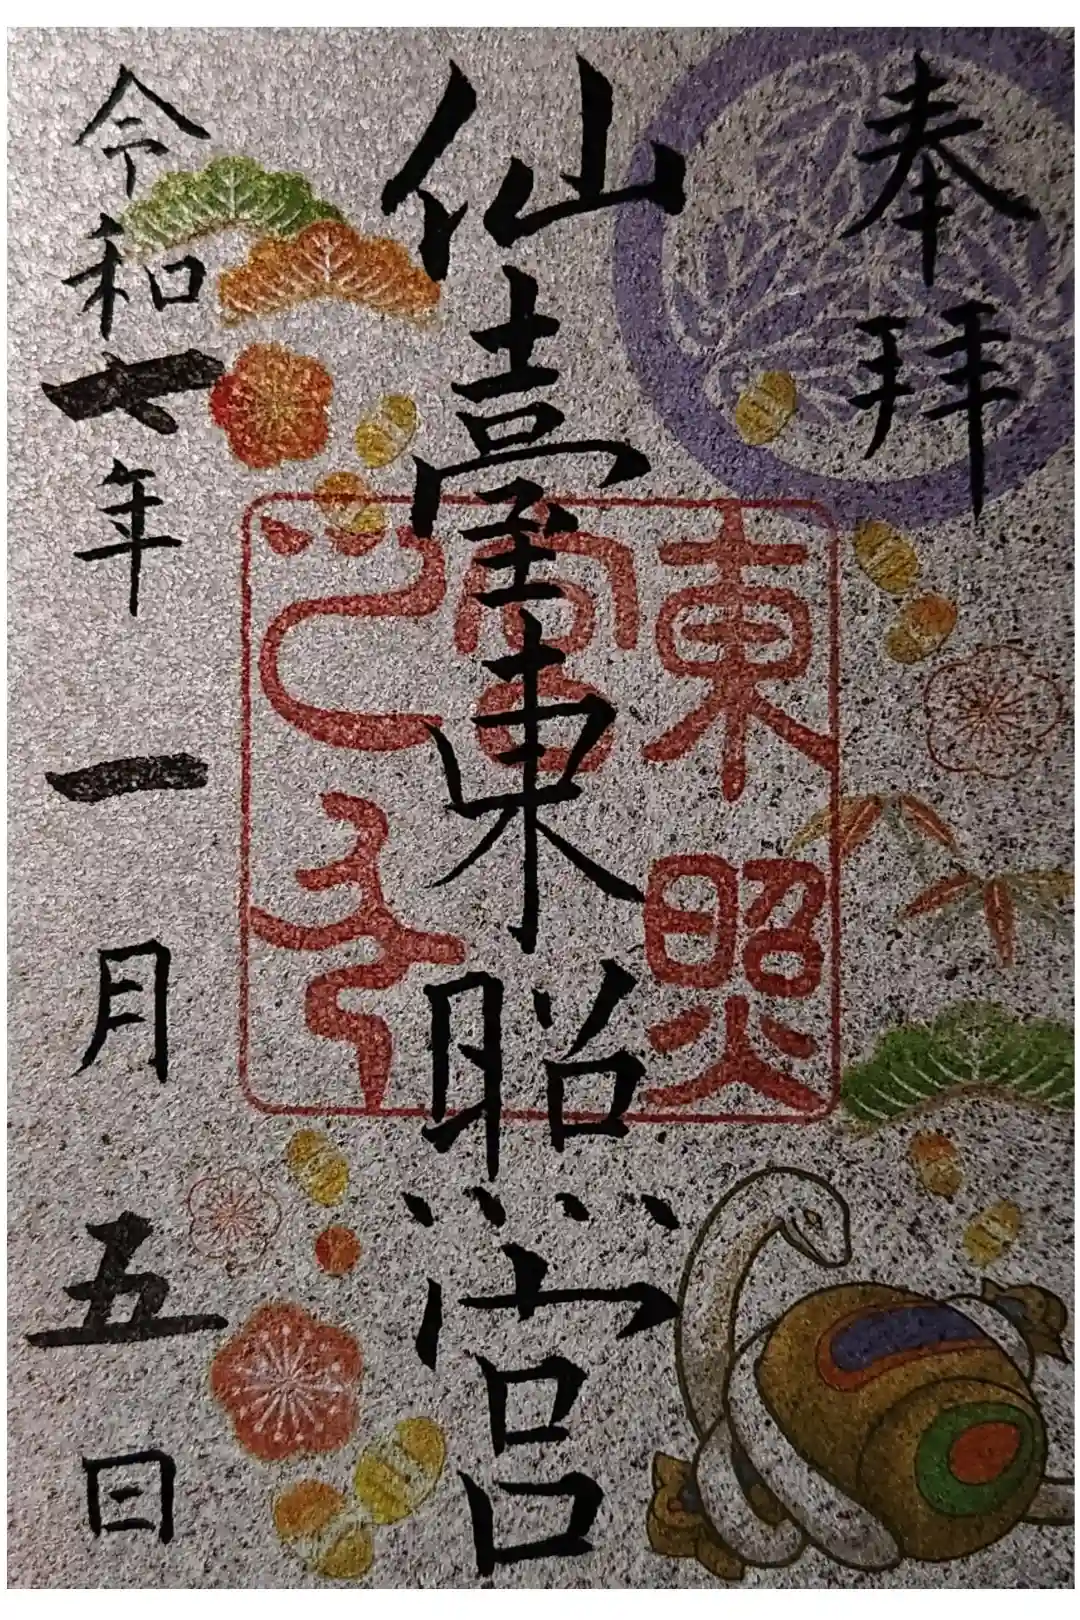 奉拝
仙臺東照宮
東照
宮
令和七年一月五日